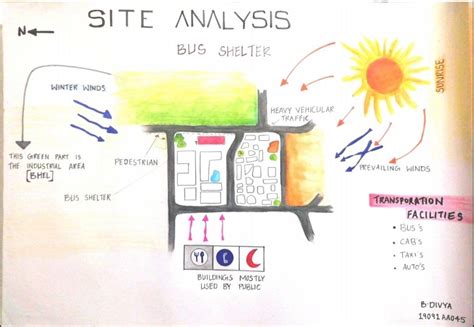 SITE ANALYSIS
BUS SHELTER
N
WINTER WINDS
HEAVY VEHICULAR
TRAFFIC
SUNRISE
THIS GREEN PART IS
THE INDUSTRIAL AREA
[BHEL]
PEDESTRIAN
BUS SHELTER
PREVAILING WINDS
TRANSPORATION
FACILITIES
• BUS'S
• CAB'S
• TAXI'S
• AUTO'S
BUILDINGS MOSTLY
USED BY PUBLIC
B·DIVYA
19091AA045